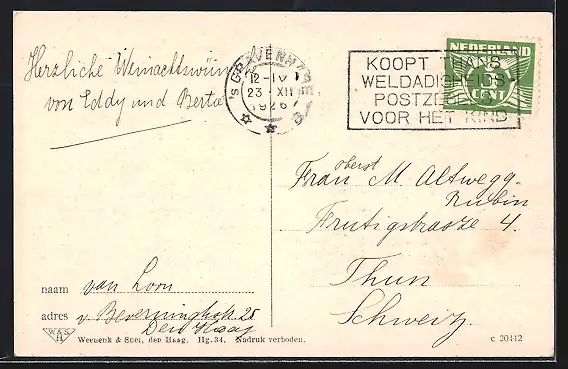 Herzliche Weinachtswün
von Eddy und Berta
's GRAVENHAGE
12-IV
23 XII
1926
3
KOOPT THANS
WELDADIGHEIDS
POSTZEGELS
VOOR HET KIND
NEDERLAND
CENT
oberst
Frau M. Altwegg-
Rubin
Frutigstrasze 4.
Thun
Schweiz.
naam van Loon
adres v. Beverninghstr. 28
Den Haag
W&S
H
Weenenk & Snel, den Haag. Hg. 34. Nadruk verboden.
c 20412